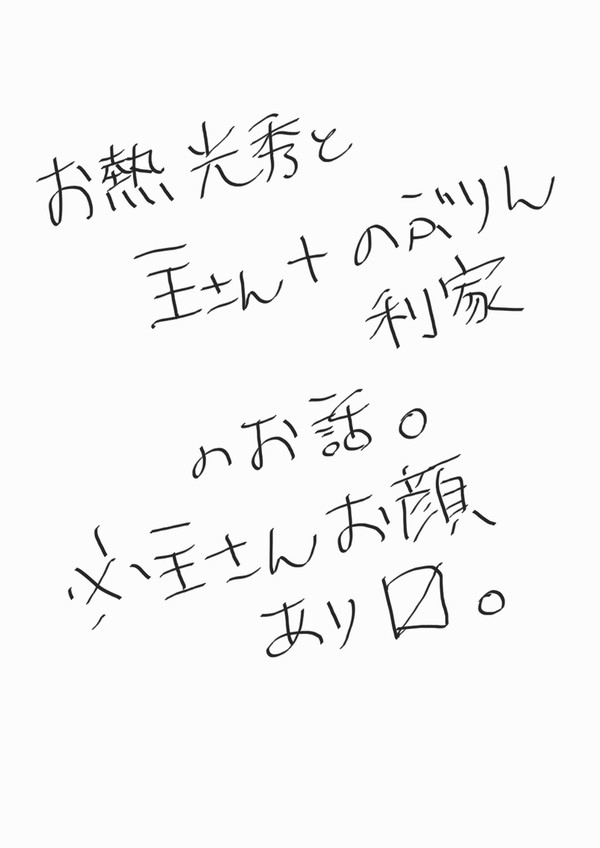 お熱光秀と
主さん+のぶりん
利家
のお話。
※主さんお顔
あり〼。